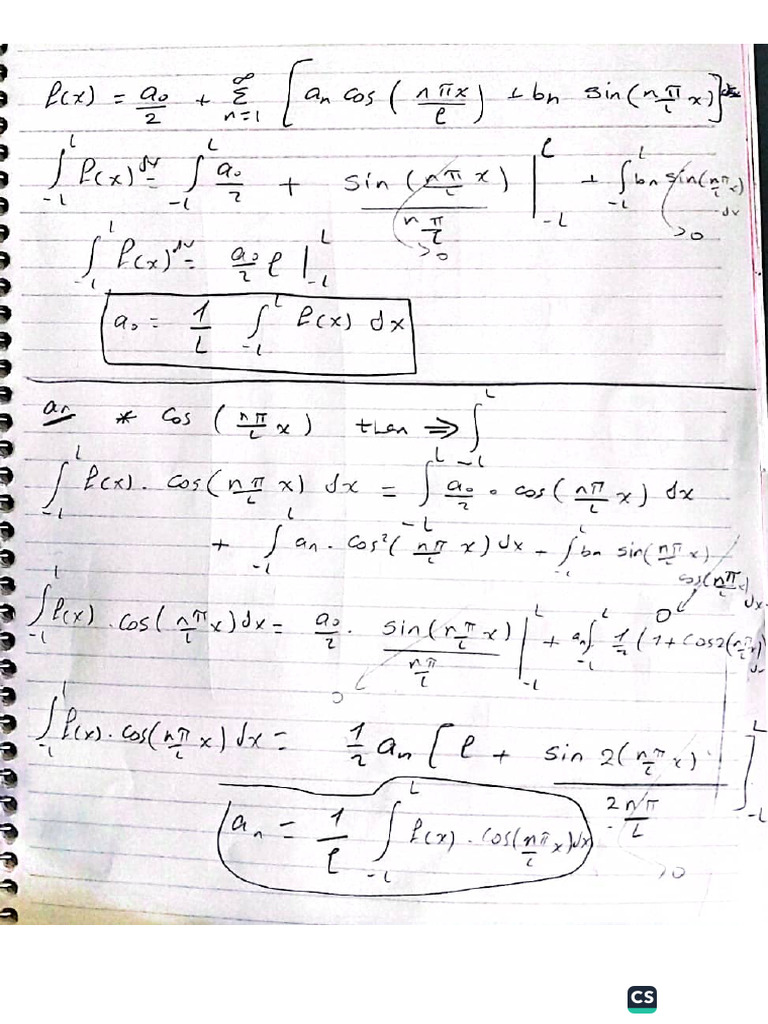 f(x) = a₀/2 + ∞ Σ n=1 [ aₙ cos ( nπx/l ) + bn sin(nπ/L x) ] dx
∫_{-L}^{L} f(x) dx = ∫_{-L}^{L} a₀/2 + sin (nπ/L x) / nπ/L |_{-L}^{l} + ∫_{-L}^{L} bn sin(nπ/L x) dx
→0 →0
∫_{-L}^{L} f(x) dx = a₀/2 l |_{-L}^{L}
a₀ = 1/L ∫_{-L}^{L} f(x) dx
an * cos ( nπ/L x ) then ⇒ ∫_{-L}^{L}
∫_{-L}^{L} f(x) . cos(nπ/L x) dx = ∫_{-L}^{L} a₀/2 . cos(nπ/L x) dx
+ ∫_{-L}^{L} an . cos²(nπ/L x) dx + ∫_{-L}^{L} bn sin(nπ/L x) cos(nπ/L x) dx
→0
∫_{-L}^{L} f(x) . cos(nπ/L x) dx = a₀/2 . sin(nπ/L x) / nπ/L |_{-L}^{L} + an ∫_{-L}^{L} 1/2 (1 + cos2(nπ/L x) dx
→0
∫_{-L}^{L} f(x) . cos(nπ/L x) dx = 1/2 an [ l + sin 2(nπ/L x) / 2nπ/L ]_{-L}^{L}
→0
an = 1/l ∫_{-L}^{L} f(x) . cos(nπ/L x) dx
CS